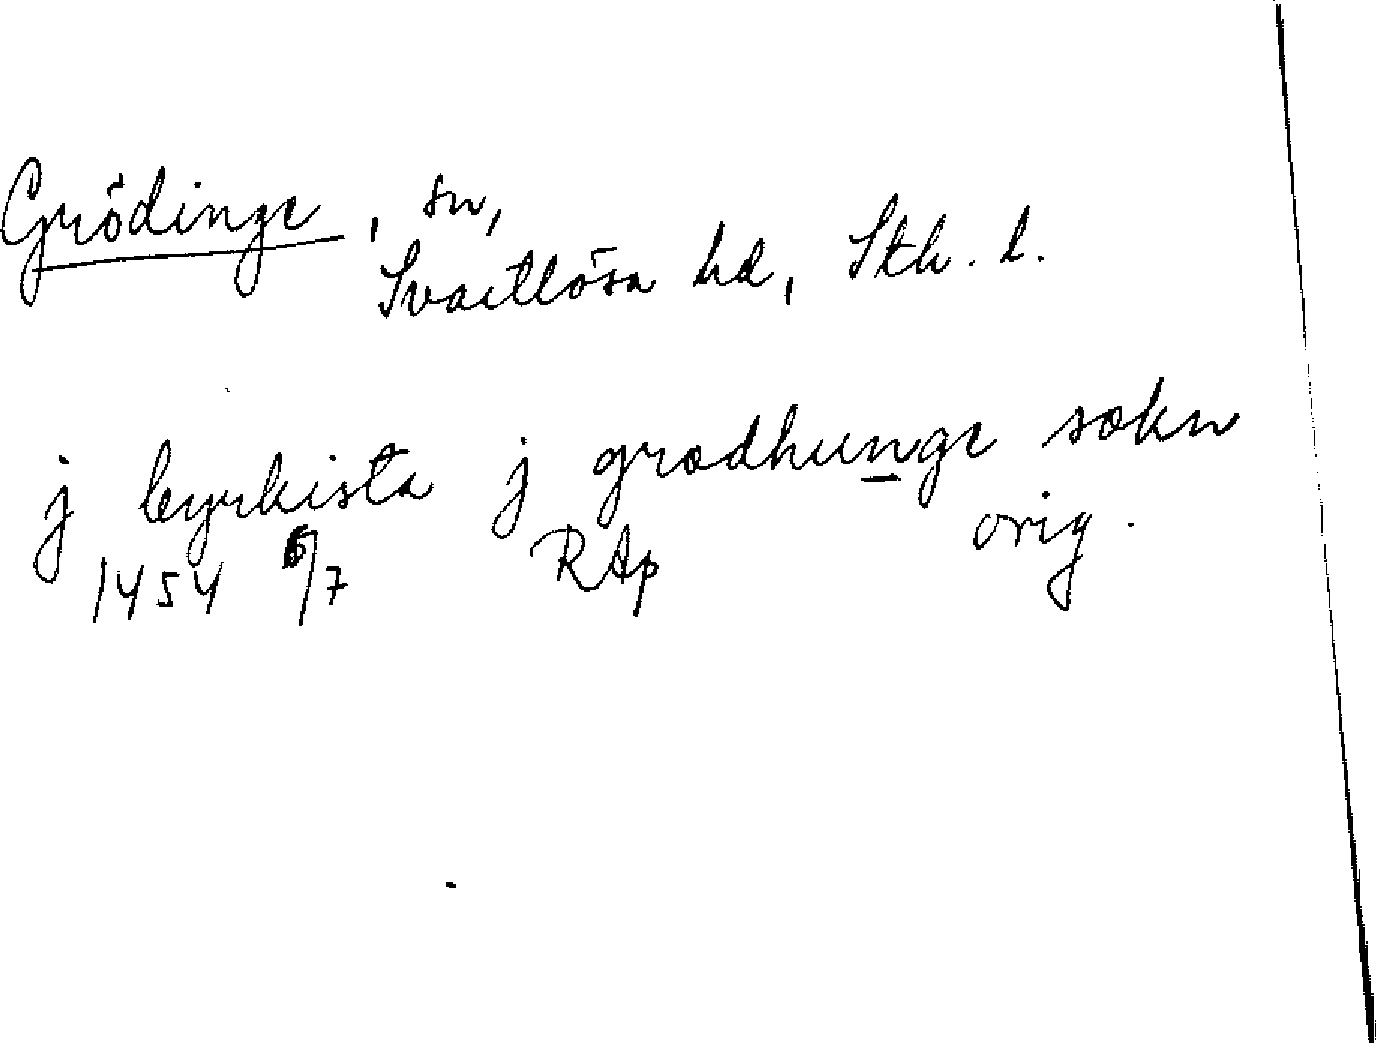 Grödinge, sn,
Svartlösa hd, Sth. l.
j byrkista j grodhunge sokn
1454 6/7 RAp orig.